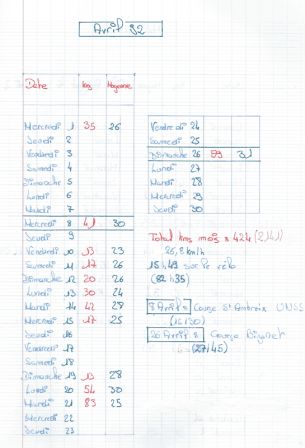 Avril 92
Date kms Moyenne
Mercredi 1 35 26
Jeudi 2
Vendredi 3
Samedi 4
Dimanche 5
Lundi 6
Mardi 7
Mercredi 8 41 30
Jeudi 9
Vendredi 10 13 23
Samedi 11 17 26
Dimanche 12 20 26
Lundi 13 30 24
Mardi 14 42 28
Mercredi 15 17 25
Jeudi 16
Vendredi 17
Samedi 18
Dimanche 19 13 28
Lundi 20 54 30
Mardi 21 83 25
Mercredi 22
Jeudi 23
Vendredi 24
Samedi 25
Dimanche 26 59 31
Lundi 27
Mardi 28
Mercredi 29
Jeudi 30
Total kms mois = 424
26,8 km/h
15h49 sur le vélo
8 Avril : Course St Ambroix UNSS
26 Avril : Course